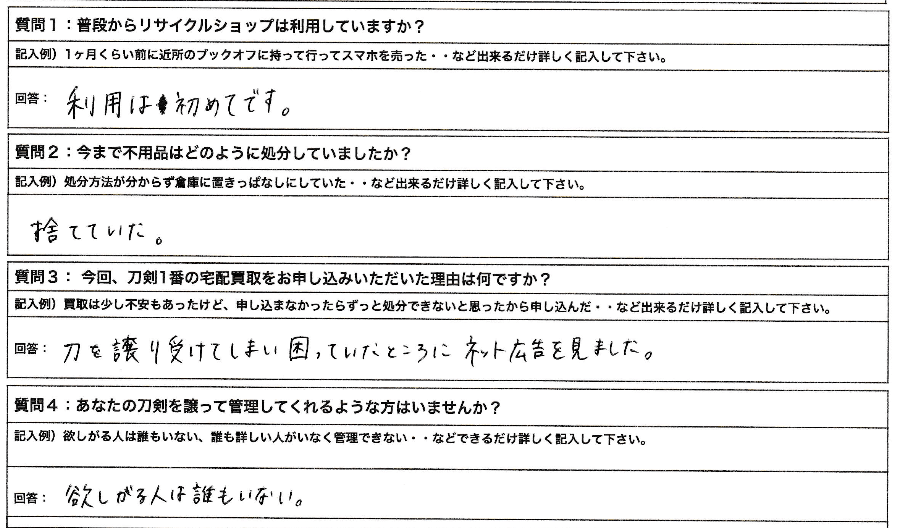 質問1：普段からリサイクルショップは利用していますか？
記入例）1ヶ月くらい前に近所のブックオフに持って行ってスマホを売った・・など出来るだけ詳しく記入して下さい。
回答： 利用は初めてです。
質問2：今まで不用品はどのように処分していましたか？
記入例）処分方法が分からず倉庫に置きっぱなしにしていた・・など出来るだけ詳しく記入して下さい。
捨てていた。
質問3： 今回、刀剣1番の宅配買取をお申し込みいただいた理由は何ですか？
記入例）買取は少し不安もあったけど、申し込まなかったらずっと処分できないと思ったから申し込んだ・・など出来るだけ詳しく記入して下さい。
回答： 刀を譲り受けてしまい困っていたところにネット広告を見ました。
質問4：あなたの刀剣を譲って管理してくれるような方はいませんか？
記入例）欲しがる人は誰もいない、誰も詳しい人がいなく管理できない・・などできるだけ詳しく記入して下さい。
回答： 欲しがる人は誰もいない。